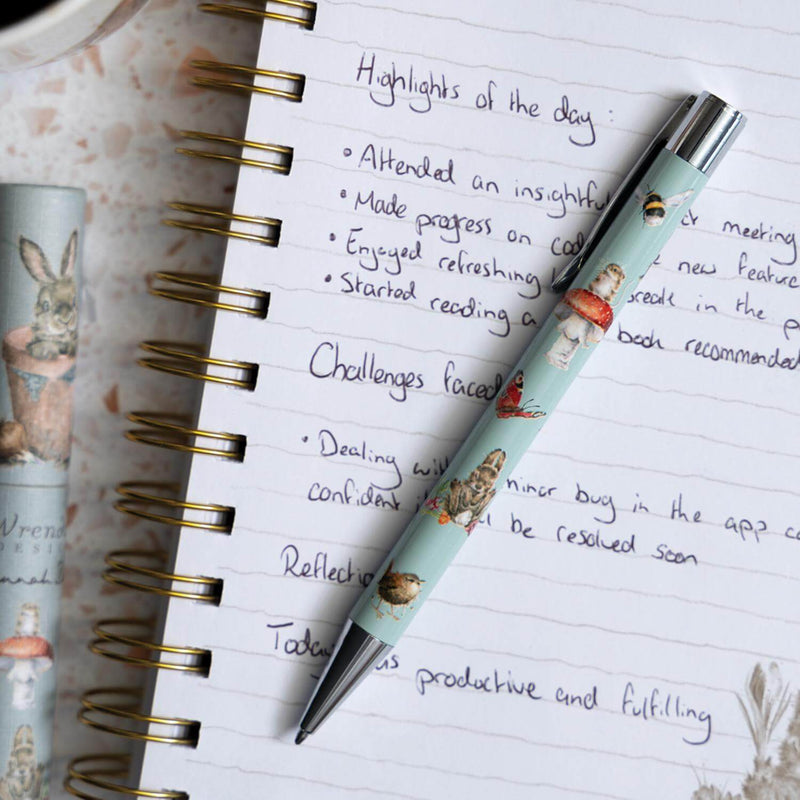 Highlights of the day :
• Attended an insightful meeting
• Made progress on new feature
• Enjoyed refreshing break in the
• Started reading a book recommended
Challenges faced
• Dealing with minor bug in the app
confident be resolved soon
Reflectio
Today was productive and fulfilling
Wrend
DESI
annah